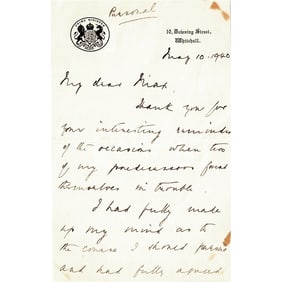 Personal
10, Downing Street,
Whitehall.
May 10. 1940
My dear Max,
Thank you for
your interesting reminder
of the occasions when two
of my predecessors found
themselves in trouble.
I had fully made
up my mind as to
the course I should pursue
and had fully agreed